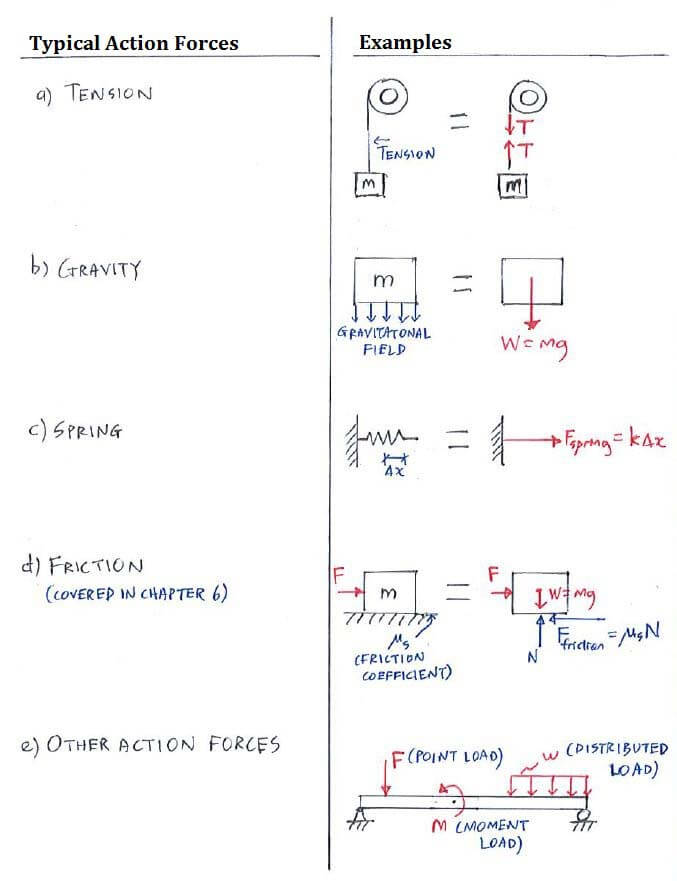 Typical Action Forces
Examples
a) TENSION
TENSION
m
=
T
T
m
b) GRAVITY
m
GRAVITATONAL
FIELD
=
W = mg
c) SPRING
Δx
=
Fspring = kΔx
d) FRICTION
(COVERED IN CHAPTER 6)
F
m
μs
(FRICTION
COEFFICIENT)
=
F
W = mg
N
Ffriction = μsN
e) OTHER ACTION FORCES
F (POINT LOAD)
W (DISTRIBUTED
LOAD)
M (MOMENT
LOAD)